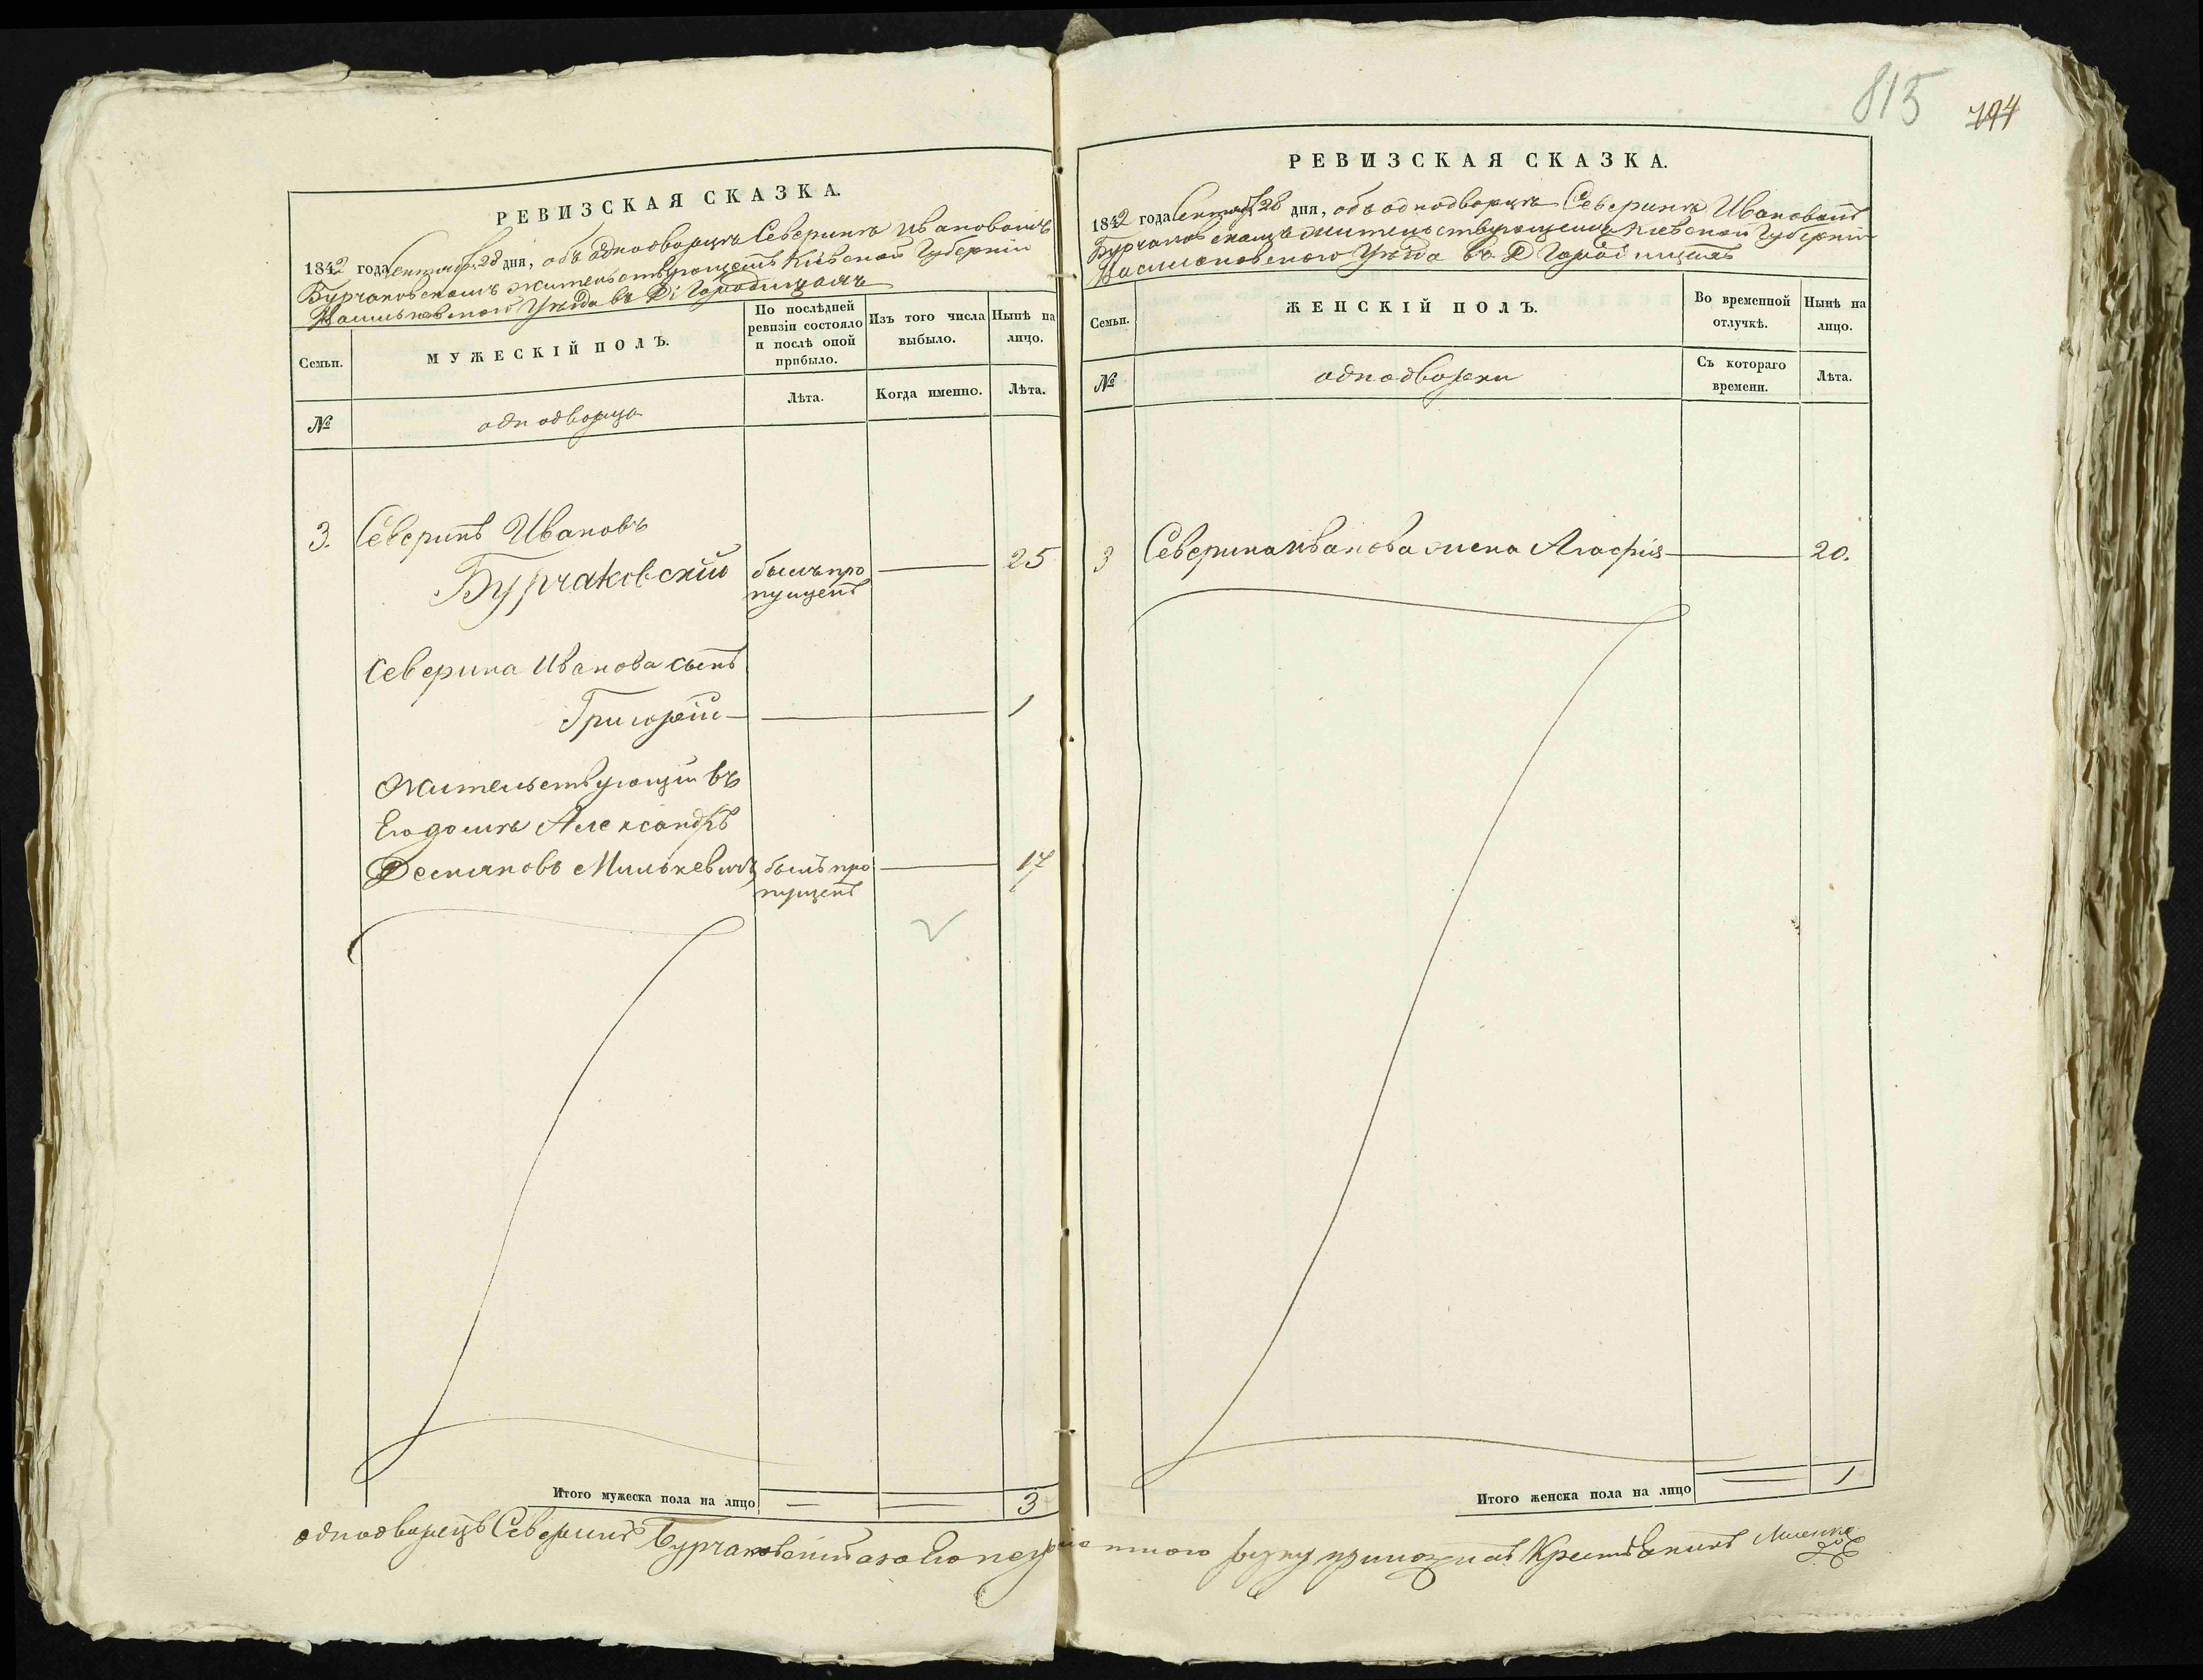 РЕВИЗСКАЯ СКАЗКА.
1842 года Сентяб 28 дня, объ однодворцѣ Северинѣ Ивановомъ
Бурчаковскомъ жительствующемъ Кіевской Губерніи
Васильковского Уѣзда въ Д. Городищахъ
Семьи.
МУЖЕСКІЙ ПОЛЪ.
По послѣдней
ревизіи состояло
и послѣ оной
прибыло.
Изъ того числа
выбыло.
Нынѣ на
лицо.
№
однодворцы
Лѣта.
Когда именно.
Лѣта.
3. Северинъ Ивановъ
Бурчаковскій былъ про 25
пущенъ
Северина Иванова сынъ
Григорій 1
Жительствующій въ
Его домѣ Александръ
Милькевичъ былъ про 17
пущенъ
Итого мужеска пола на лицо 3
815
794
РЕВИЗСКАЯ СКАЗКА.
1842 года Сентяб 28 дня, объ однодворцѣ Северинѣ Ивановомъ
Бурчаковскомъ жительствующемъ Кіевской Губерніи
Васильковского Уѣзда въ Д Городищахъ
Семьи.
ЖЕНСКІЙ ПОЛЪ.
Во временной
отлучкѣ.
Нынѣ на
лицо.
№
однодворки
Съ котораго
времени.
Лѣта.
3 Северина Иванова жена Агафія 20.
Итого женска пола на лицо 1
однодворецъ Северинъ Бурчаковскій а за Его неграмотного руку приложилъ Крестьянинъ